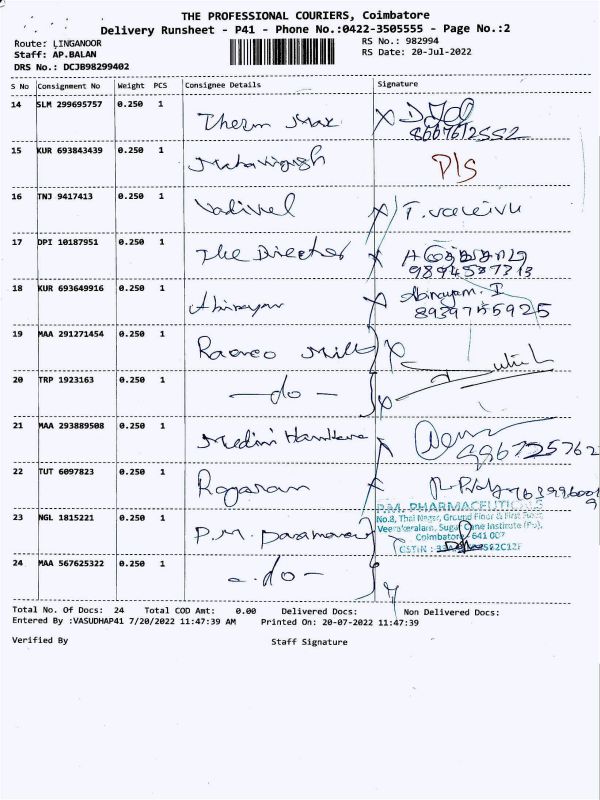 THE PROFESSIONAL COURIERS, Coimbatore
Delivery Runsheet - P41 - Phone No.:0422-3505555 - Page No.:2
Route: LINGANOOR
RS No.: 982994
Staff: AP.BALAN
RS Date: 20-Jul-2022
DRS No.: DCJB98299402
S No Consignment No Weight PCS Consignee Details Signature
14 SLM 299695757 0.250 1 Therm Max
8667612552
15 KUR 693843439 0.250 1 P/S
16 TNJ 9417413 0.250 1 Vadivel
17 DPI 10187951 0.250 1 The Director
9894587313
18 KUR 693649916 0.250 1 Abinayam Abinayam. I
8939755925
19 MAA 291271454 0.250 1
20 TRP 1923163 0.250 1 - do -
21 MAA 293889508 0.250 1
22 TUT 6097823 0.250 1 Rajaram
P.M. PHARMACEUTICALS
No.8, Thai Nagar, Ground Floor & First Floor,
23 NGL 1815221 0.250 1 P.M.
Veerakeralam, Sugar Cane Institute (Po),
Coimbatore - 641 007
GSTIN :
24 MAA 567625322 0.250 1 - do -
Total No. Of Docs: 24 Total COD Amt: 0.00 Delivered Docs: Non Delivered Docs:
Entered By :VASUDHAP41 7/20/2022 11:47:39 AM Printed On: 20-07-2022 11:47:39
Verified By Staff Signature